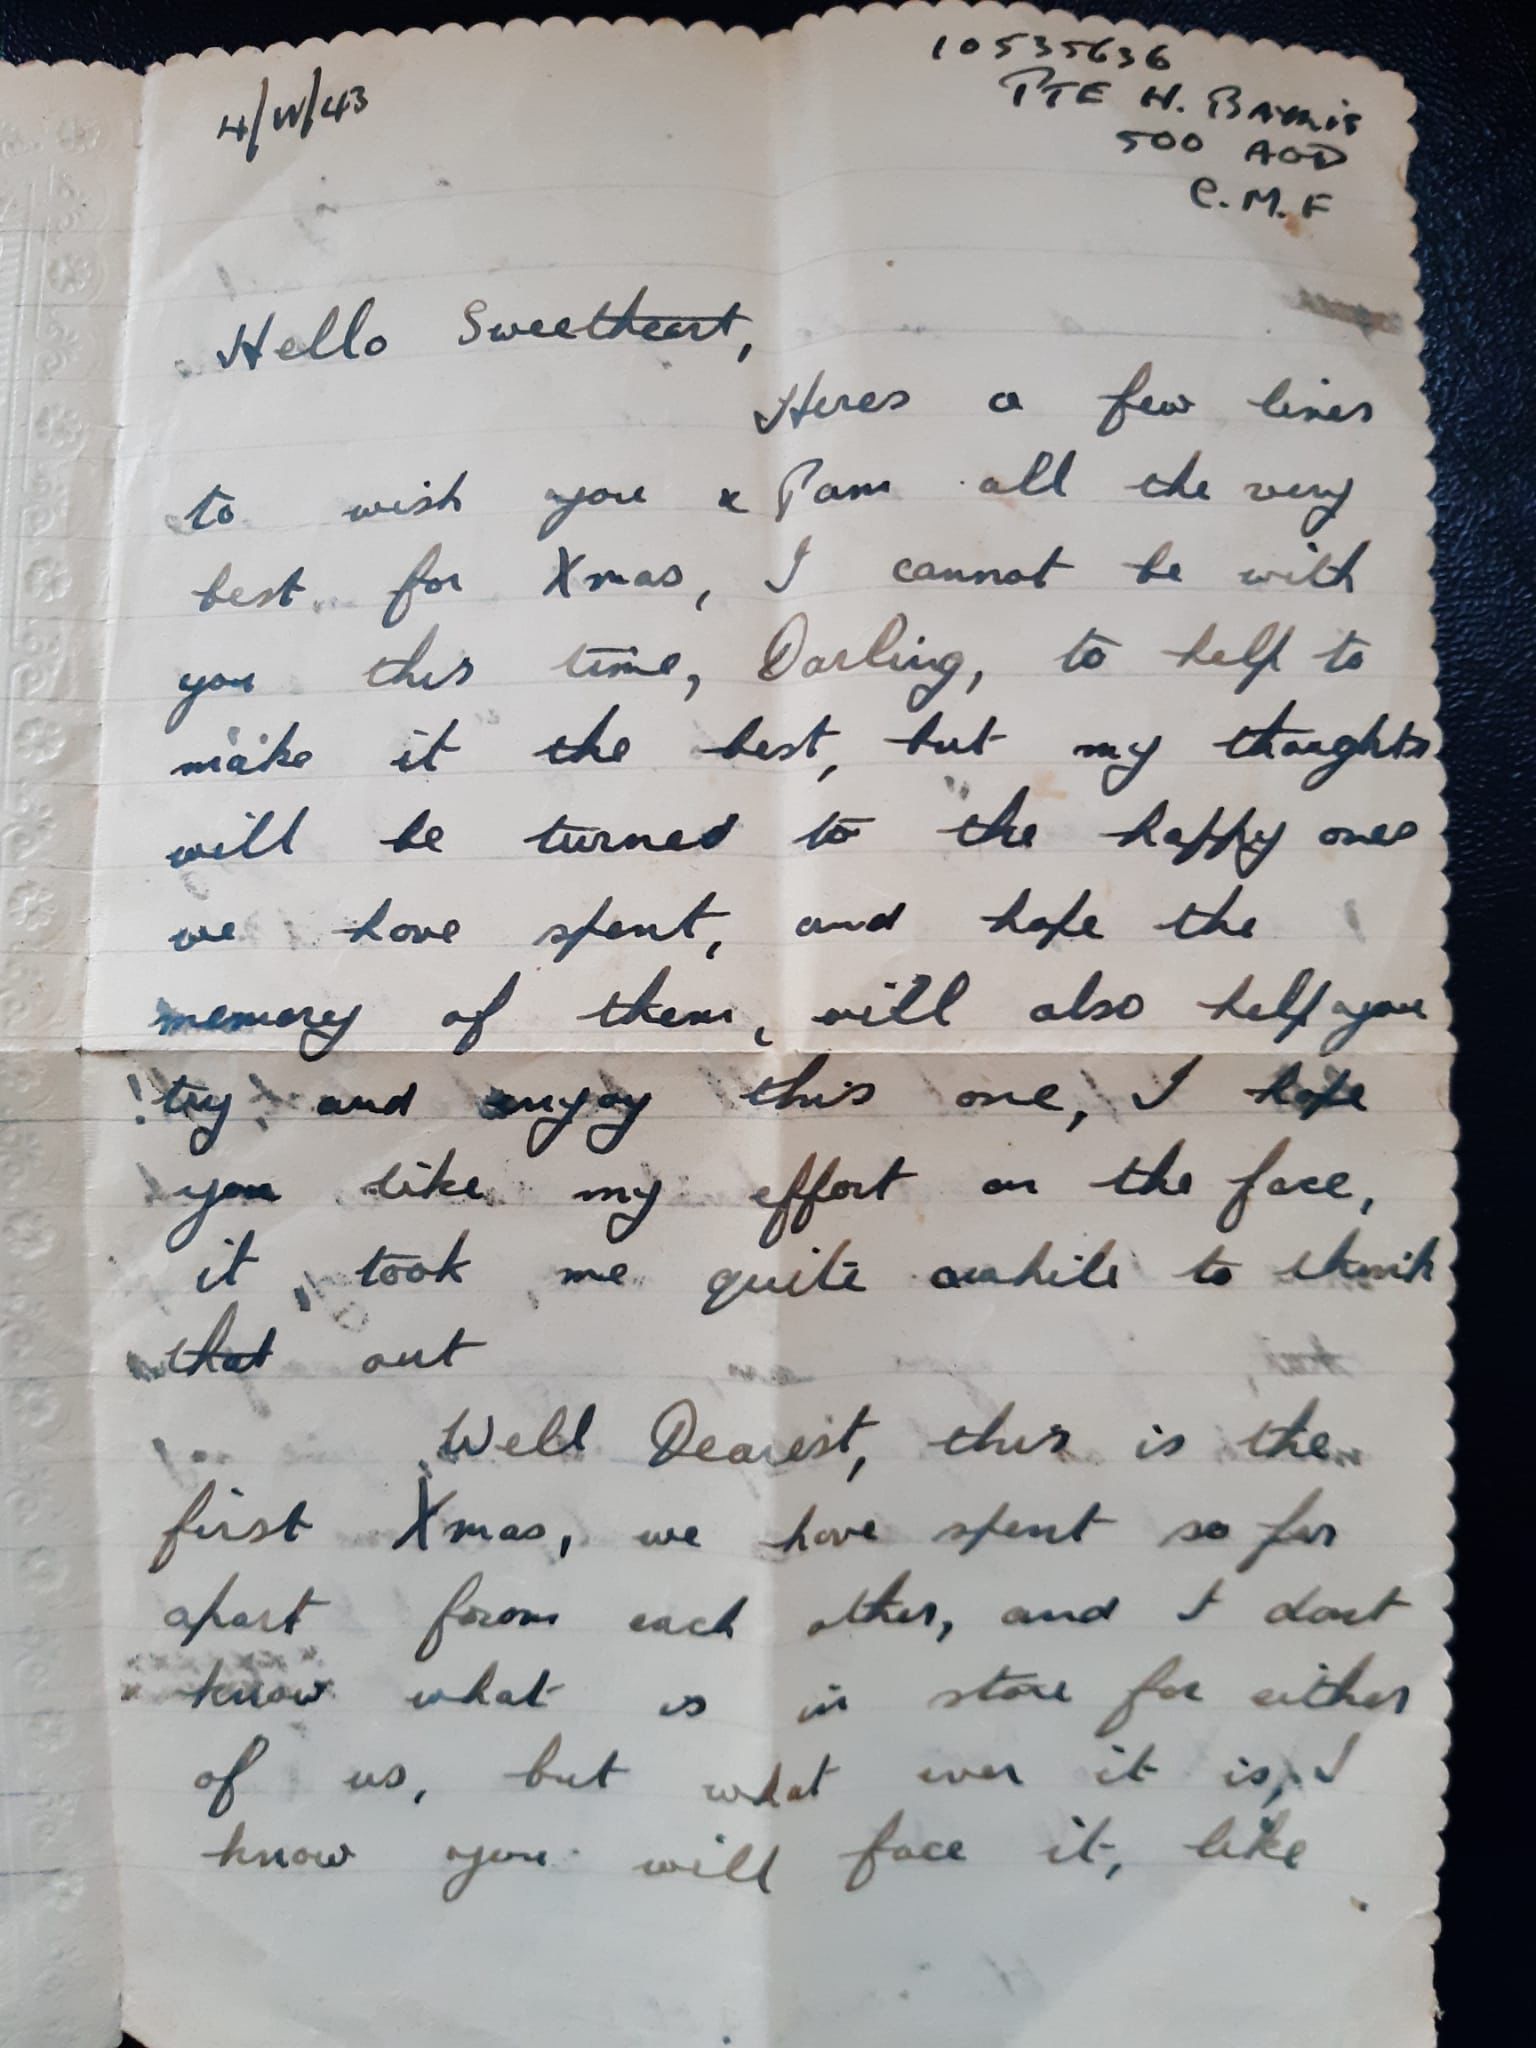 4/11/43
10535636
PTE H.
500 AOD
C.M.F
Hello Sweetheart,
Heres a few lines
to wish you & Pam all the very
best for Xmas, I cannot be with
you this time, Darling, to help to
make it the best, but my thoughts
will be turned to the happy ones
we have spent, and hope the
memory of them, will also help you
try and enjoy this one, I hope
you like my effort on the face,
it took me quite awhile to think
that out
Well Dearest, this is the
first Xmas, we have spent so far
apart from each other, and I dont
know what is in store for either
of us, but what ever it is, I
know you will face it, like